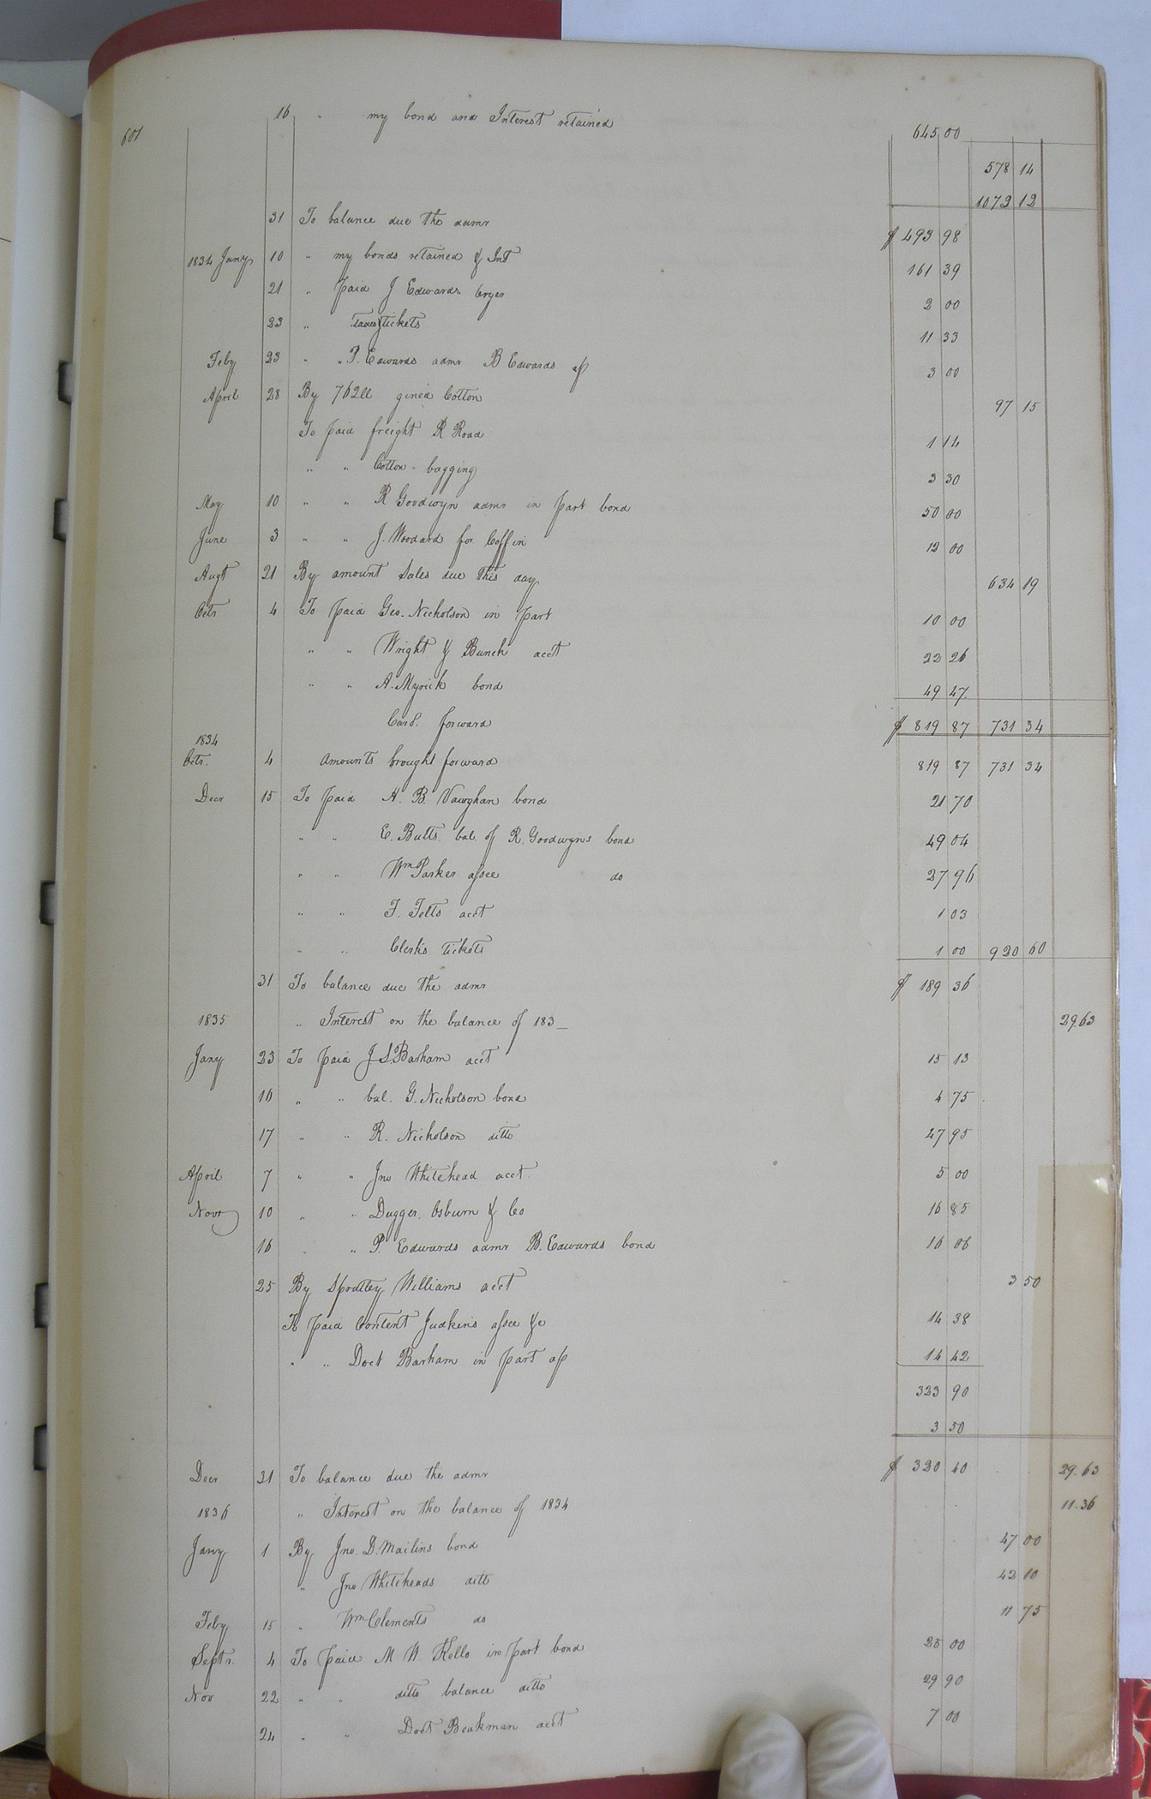 607
16 " my bond and Interest retained 645 00
578 14
1072 12
31 To balance due the admr $ 493 98
1834 Jany 10 " my bonds retained & Int 161 39
21 " Paid J Edwards 2 00
23 " Taxes Tickets 11 33
Feby 23 " " P. Edwards admr B Edwards 3 00
April 28 By 762 gined Cotton 97 15
To paid freight R Road 1 14
" " Cotton-bagging 3 30
May 10 " " R Goodwyn admr in part bond 50 00
June 3 " " J. Woodard for Coffin 12 00
Augt 21 By amount Sales due this day 634 19
Octr 4 To paid Geo. Nicholson in part 10 00
" " Wright & Bunch acct 22 26
" " A. Myrick bond 49 47
Card. forward $ 819 87 731 34
1834
Octr. 4 amounts brought forward 819 87 731 34
Decr 15 To paid H. B. Vaughan bond 21 70
" " E. Butts bal. of R. Goodwyns bond 49 04
" " Wm Parker assee do 27 96
" " F. Felts acct 1 03
" " Clerks tickets 1 00 920 60
31 To balance due the admr $ 189 36
1835 " Interest on the balance of 183_ 29.63
Jany 23 To paid J S. Barham acct 15 13
16 " " bal. G. Nicholson bond 4 75
17 " " R. Nicholson ditto 27 95
April 7 " " Jno Whitehead acct. 5 00
Novr 10 " " Dugger, Osburn & Co 16 85
16 " " P Edwards admr B. Edwards bond 16 06
25 By Spratley Williams acct 3 50
To paid Content Judkins assee &c 14 38
" " Doct Barham in part 14 42
323 90
3 50
Decr 31 To balance due the admr $ 320 40 29.63
1836 " Interest on the balance of 1834 11.36
Jany 1 By Jno. D. Mailins bond 47 00
" Jno Whiteheads ditto 42 10
Feby 15 " Wm Clements do 11 75
Septr. 4 To paid M W. Kello in part bond 28 00
Nov 22 " " ditto balance ditto 29 90
24 " " Doct Beakman acct 7 00